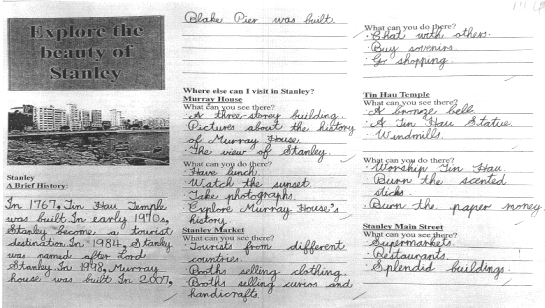 Explore the
beauty of
Stanley
Stanley
A Brief History:
In 1767, Tin Hau Temple
was built. In early 1970s,
Stanley become a tourist
destination. In 1984, Stanley
was named after Lord
Stanley. In 1998, Murray
house was built. In 2007,
Blake Pier was built.
Where else can I visit in Stanley?
Murray House
What can you see there?
· A three-storey building.
· Pictures about the history
of Murray House.
· The view of Stanley.
What can you do there?
· Have lunch.
· Watch the sunset.
· Take photographs.
· Explore Murray House's
history.
Stanley Market
What can you see there?
· Tourists from different
countries.
· Booths selling clothing.
· Booths selling curios and
handicrafts.
What can you do there?
· Chat with others.
· Buy sovenirs.
· Go shopping.
Tin Hau Temple
What can you see there?
· A bronze bell
· A Tin Hau Statue.
· Windmills.
What can you do there?
· Worship Tin Hau.
· Burn the scented
sticks.
· Burn the paper money.
Stanley Main Street
What can you see there?
· Supermarkets.
· Restaurants.
· Splendid buildings.